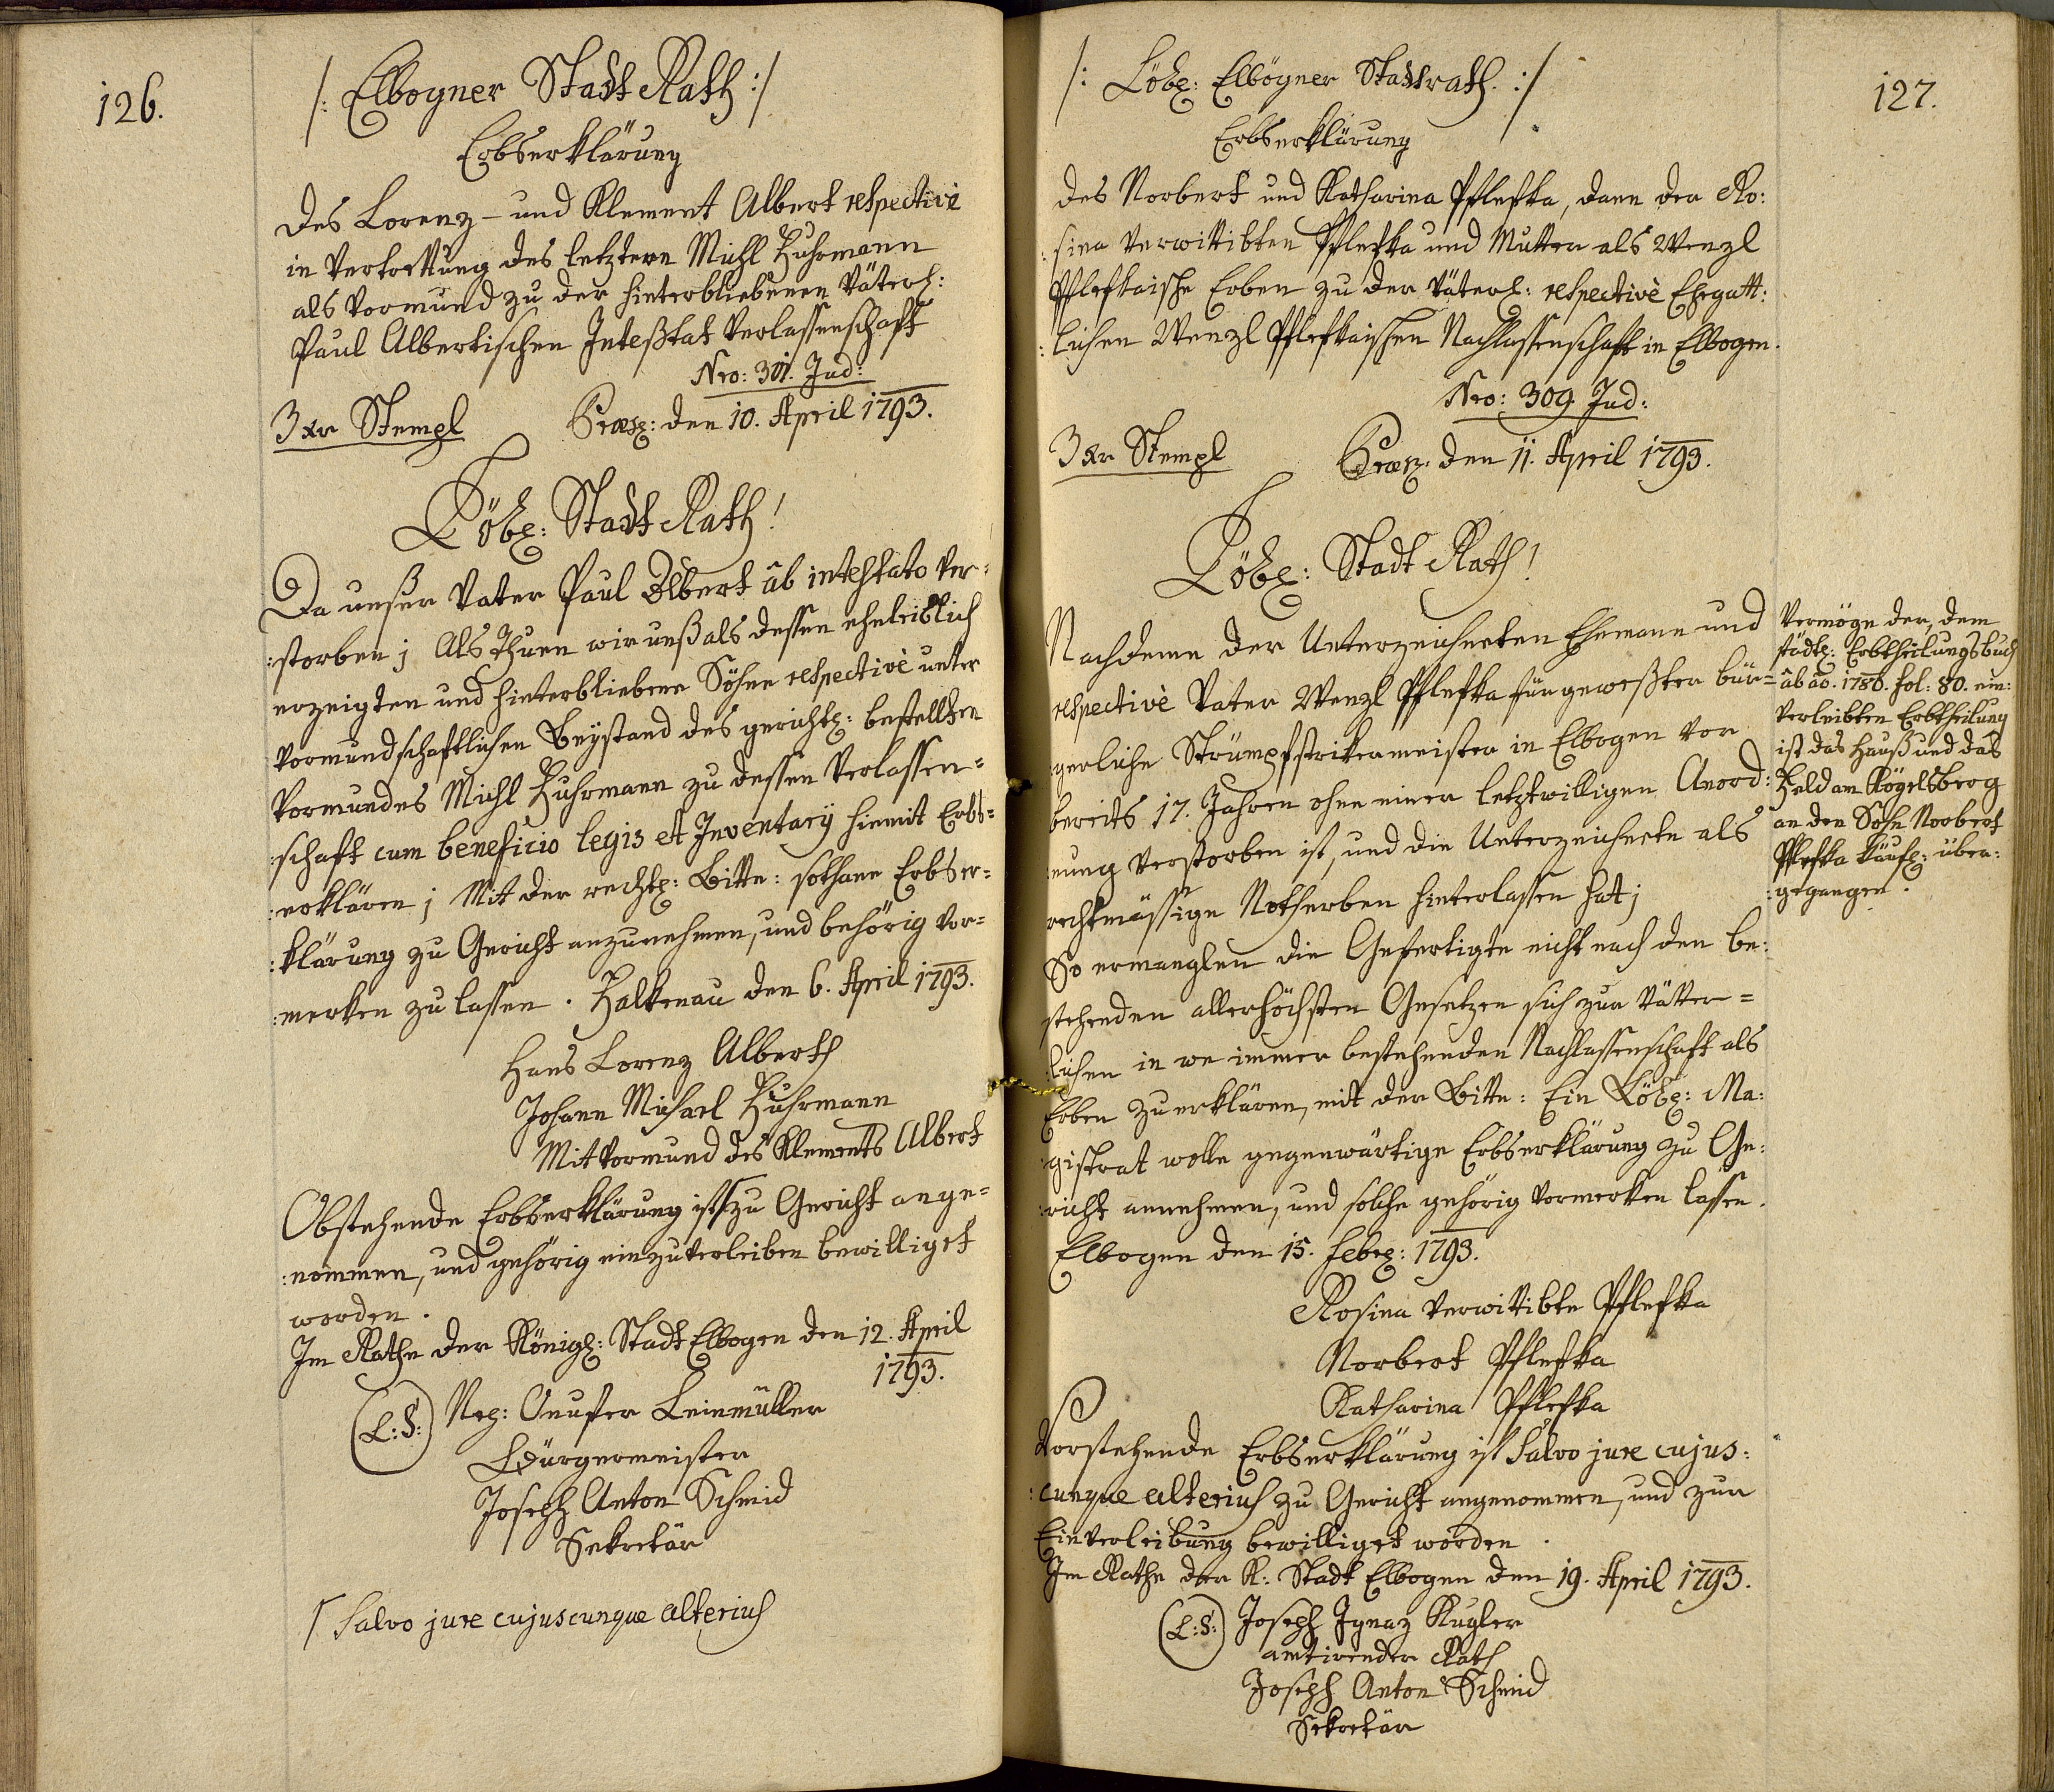 126.
/: Elbogner Stadt Rath :/
Erbserklärung
des Lorenz – und Klement Albert respective
in Vertrettung des letztern Michl Fuhrmann
als Vormund zu der hinterbliebenen Väterl:
Paul Albertischen Inteßtat Verlassenschaft
Nro: 301. Jud:
3 Xr Stempl Præs: den 10. April 1793.
Löbl: Stadt Rath!
Da unser Vater Paul Albert ab intestato ver=
:storben; Als Thuen wir unß als dessen eheleiblich
erzeigten und hinterbliebene Söhne respectivè unter
Vormundschaftlichen Beystand des gerichtl: bestellten
Vormundes Michl Fuhrmann zu dessen Verlassen=
:schaft cum beneficio legis et Inventarÿ hiemit Erbs=
:erklären; Mit der rechtl: Bitte: sothane Erbser=
:klärung zu Gericht anzunehmen, und behörig vor=
:merken zu lassen. Falkenau den 6. April 1793.
Hans Lorenz Alberth
Johann Michael Fuhrmann
Mitvormund des Klements Albert
Obstehende Erbserklärung ist / zu Gericht ange=
:nommen, und gehörig einzuverleiben bewilliget
worden.
Im Rathe der Königl: Stadt Elbogen den 12. April
1793.
(L:S:) Nep: Onufer Leinmüller
Bürgermeister
Joseph Anton Schmid
Sekretär
/ Salvo jure cujuscunque alterius
/: Löbl: Elbogner Stadtrath. :/
127.
Erbserklärung
des Norbert und Katharina Pflefka, dann der Ro:
:sina verwittibten Pflefka und Mutter als Wenzl
Pflefkaische Erben zu der Väterl: respectivè Ehegatt:
:lichen Wenzl Pflefkaischen Nachlassenschaft in Elbogen.
Nro: 309 Jud:
3 Xr Stempl Præs: den 11. April 1793.
Löbl: Stadt Rath!
Nachdeme der Unterzeichneten Ehemann und
respectivè Vater Wenzl Pflefka für geweßter bür=
:gerliche Strumpfstrikermeister in Elbogen vor
bereits 17. Jahren ohne einer letztwilligen Anord:
:nung verstorben ist, und die Unterzeichnete als
rechtmässige Notherben hinterlassen hat;
So ermanglen die Gefertigte nicht nach den be:
stehenden allerhöchsten Gesetzen sich zur Vätter=
:lichen in we immer bestehenden Nachlassenschaft als
Erben zu erklären, mit der Bitte: Ein Löbl: Ma:
:gistrat wolle gegenwärtige Erbserklärung zu Ge:
:richt annehmen, und solche gehörig vormerken lassen.
Elbogen den 15. Febr: 1793.
Rosina verwittibte Pflefka
Norbert Pflefka
Katharina Pflefka
Vorstehende Erbserklärung ist Salvo jure cujus:
:cunque alterius zu Gericht angenommen, und zur
Einverleibung bewilliget worden.
Im Rathe der K: Stadt Elbogen den 19. April 1793.
(L:S:) Joseph Ignaz Kugler
amtirender Rath
Joseph Anton Schmid
Sekretär
Vermöge der, dem
städtl: Erbtheilungsbuch
ab ao. 1786. fol: 80. ein:
verleibten Erbtheilung
ist das Hauß und das
Feld am Kögelsberg
an den Sohn Norbert
Pflefka käufl: über:
:gegangen.